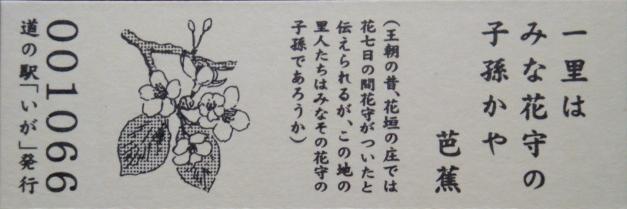 一里は
みな花守の
子孫かや
芭蕉
（王朝の昔、花垣の庄では
花七日の間花守がついたと
伝えられるが、この地の
里人たちはみなその花守の
子孫であろうか）
001066
道の駅「いが」発行